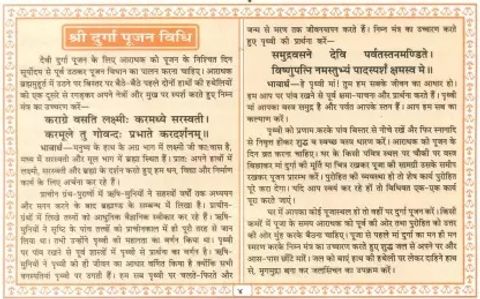 श्री दुर्गा पूजन विधि
देवी दुर्गा पूजन के लिए आराधक को पूजन के निश्चित दिन
सूर्योदय से पूर्व उठकर पूजन विधान का पालन करना चाहिए। आराधक
ब्रह्ममुहूर्त में उठने पर बिस्तर पर बैठे-बैठे पहले दोनों हाथों की हथेलियों
को एक दूसरे से रगड़कर अपने नेत्रों और मुख पर स्पर्श करते हुए निम्न
मंत्र का उच्चारण करें—
कराग्रे वसति लक्ष्मीः करमध्ये सरस्वती।
करमूले तु गोविन्दः प्रभाते करदर्शनम्॥
भावार्थ—मनुष्य के हाथ के अग्र भाग में लक्ष्मी जी का वास है,
मध्य में सरस्वती और मूल भाग में ब्रह्मा स्थित हैं। प्रातः अपने हाथों में
लक्ष्मी, सरस्वती और ब्रह्मा के दर्शन करते हुए हम धन, विद्या और निर्माण
कार्य के लिए अर्चना कर रहे हैं।
प्राचीन ग्रंथ-पुराणों में ऋषि-मुनियों ने सहस्त्रों वर्षों तक अध्ययन
और मनन करने के बाद ब्रह्माण्ड के सम्बन्ध में लिखा है। प्राचीन-
ग्रंथों में लिखे तत्त्वों को आधुनिक वैज्ञानिक स्वीकार कर रहे हैं। ऋषि-
मुनियों ने सृष्टि के पांच तत्वों को प्राचीनकाल में ही पूरी तरह से जान
लिया था। तभी उन्होंने पृथ्वी की महानता का वर्णन किया था। पृथ्वी
पर पांव रखने से पूर्व शास्त्रों में पृथ्वी से प्रार्थना का वर्णन है। ऋषि-
मुनियों ने पृथ्वी को ही जीवन का आधार वर्णित किया है क्योंकि सभी
वनस्पतियां पृथ्वी पर उगती हैं। हम सब पृथ्वी पर चलते-फिरते और
जन्म से मरण तक जीवनयापन करते हैं। निम्न मंत्र का उच्चारण करते
हुए पृथ्वी की प्रार्थना करें—
समुद्रवसने देवि पर्वतस्तनमण्डिते।
विष्णुपत्नि नमस्तुभ्यं पादस्पर्शं क्षमस्व मे॥
भावार्थ— हे पृथ्वी मां! तुम हम सबके जीवन का आधार हो।
हम आप पर पांव रखने से पूर्व क्षमा-याचना और प्रार्थना करते हैं। पृथ्वी
मां आपका वस्त्र समुद्र है और पर्वत आपके स्तन हैं। आप हम सब का
कल्याण करें।
पृथ्वी को प्रणाम करके पांव बिस्तर से नीचे रखें और फिर स्नानादि
से निवृत्त होकर शुद्ध व स्वच्छ वस्त्र धारण करें। आराधक को पूजन के
दिन व्रत करना चाहिए। घर के किसी पवित्र स्थल पर चौकी पर वस्त्र
बिछाकर मां दुर्गा की मूर्ति या चित्र रखकर पूजा की सामग्री उसके समीप
रखकर पूजन प्रारम्भ करें। पुरोहित की व्यवस्था हो तो शेष कार्य पुरोहित
पूरे करा देगा। यदि आप स्वयं कर रहे हों तो विधिवत एक-एक कार्य
पूरी करते जाएं।
घर में आपका कोई पूजास्थल हो तो वहाँ पर दुर्गा पूजन करें। किसी
कमरे में पूजा के समय आराधक को पूर्व की ओर तथा पुरोहित को उत्तर
की ओर मुंह करके बैठना चाहिए। पूजा से पहले मां दुर्गा का मन ही मन
स्मरण करके निम्न मंत्र का उच्चारण करते हुए शुद्ध जल से अपने पर और
आस-पास छींटे मारें। जल को बाएं हाथ की हथेली पर लेकर दाहिने हाथ
से, मृगमुद्रा बना कर जलसिंचन का उपक्रम करें।
४